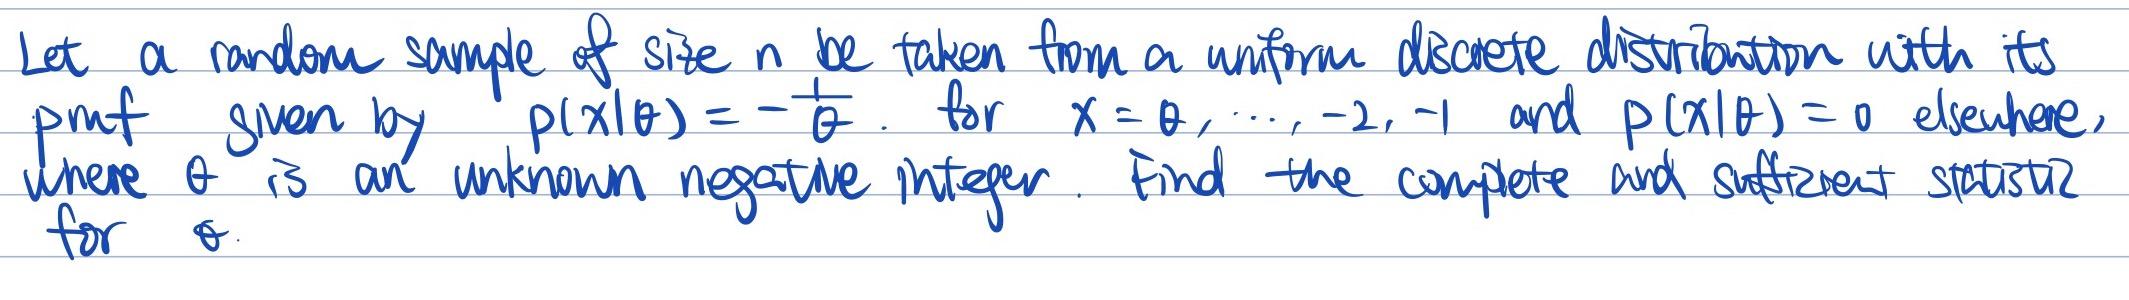 Let a random sample of size n be taken from a uniform discrete distribution with its
pmf given by p(x|θ) = -1/θ. for x = θ, ..., -2, -1 and p(x|θ) = 0 elsewhere,
where θ is an unknown negative integer. Find the complete and sufficient statistic
for θ.